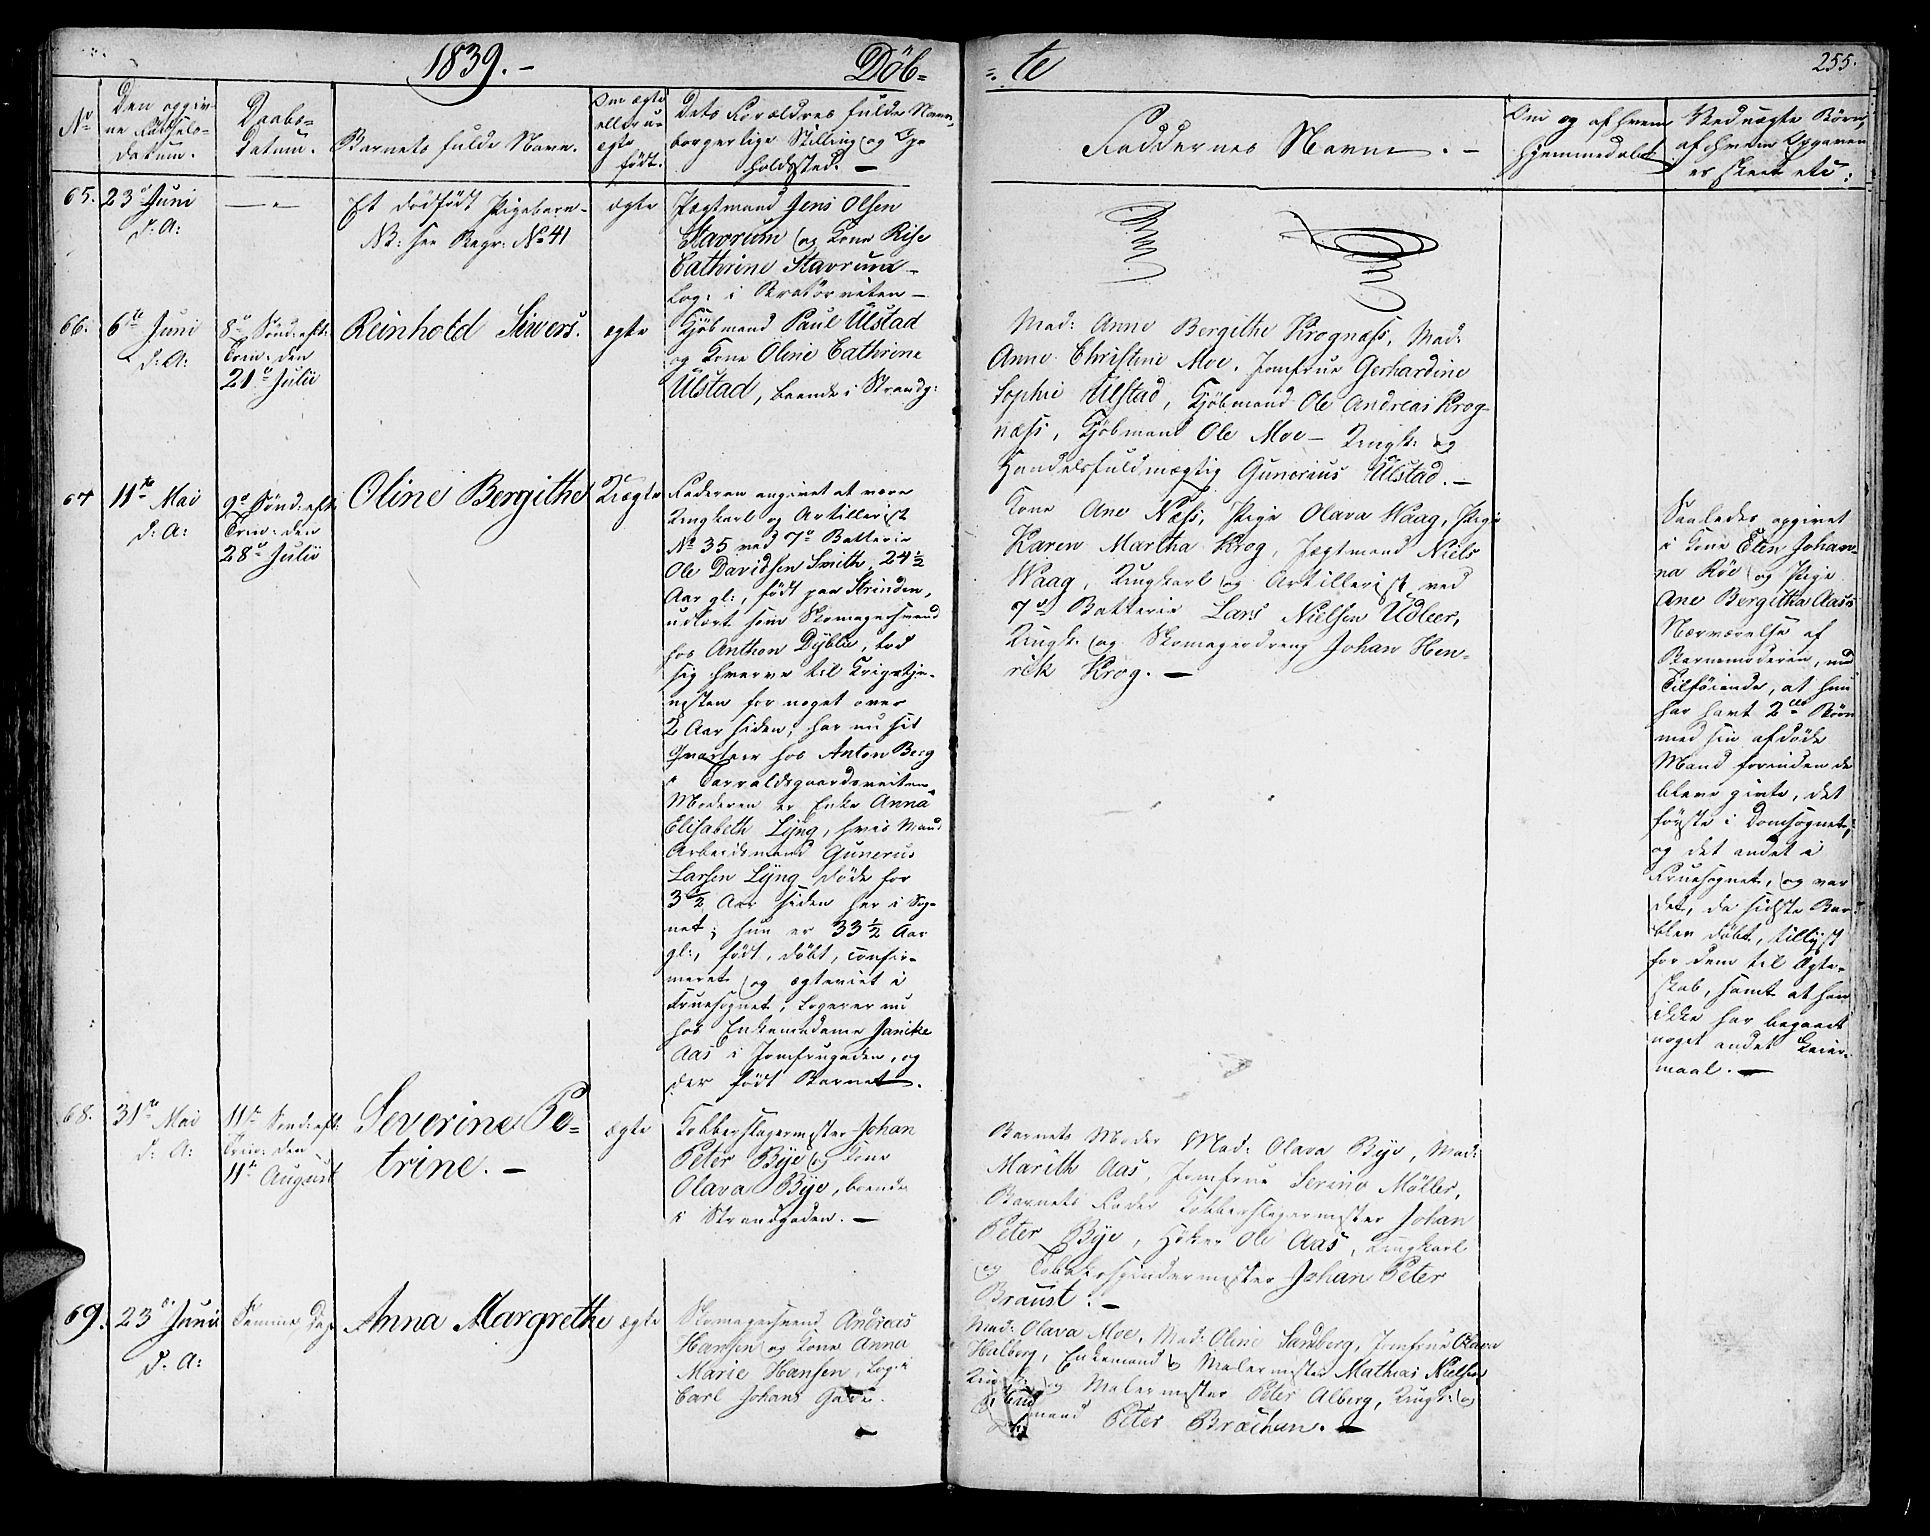 1839.-
Döb-
-te
255.
No
Den opgiv-
ne Fødsels-
datum.
Daabs-
datum.
Barnets fulde Navn.
Om ægte
eller u-
ægte
født.
Dets Forældres fulde Navn,
borgerlige Stilling og Op-
holdssted. -
Faddernes Navne. -
Om og af hvem
hjemmedøbt
Ved uægte Børn,
af hvem Opgaven
er skeet etc:
65.
23de Juni
d: A:
Et dødfødt Pigebarn-
NB: see Regr: No 41
ægte
Jægtmand Jens Olsen
Stavrum og Kone Rise
Cathrine Stavrum -
Log: i
66.
6te Juni
d: A:
8de Sønd: eft:
Trin: den
21de Julii
Reinhold Siwers.
ægte
Kjöbmand Paul Ulstad
og Kone Oline Cathrine
Ulstad, boende i Strandg:
Mad: Anne Bergithe Krognæss, Mad:
Anne Christine Moe, Jomfrue Gerhardine
Sophie Ulstad, Kjöbmand Ole Andreas Krog-
næss, Kjöbmand Ole Moe - Ungk: og
Handelsfuldmægtig Gunerius Ulstad. -
67
11te Mai
d: A:
9de Sönd: eft:
Trin: den
28de Julii
Oline Bergithe
Uægte
Faderen angivet at være
Ungkarl og Artillerist
No 35 ved 7de Batterie
Ole Davidsen Smith, 24 1/2
Aar gl:, født paa Strinden,
udlært som Skomagersvend
hos Anthon Dyblie, lod
sig hverve til Krigstje-
nesten for noget over
2 Aar siden, har nu sit
Qvarteer hos Anton Berg
i Torvaldsgaardsveiten.
Moderen er Enke Anna
Elisabeth Lyng, hvis Mand
Arbeidsmand Gunerus
Larsen Lyng døde for
3 1/2 Aar siden her i Sog-
net; hun er 33 1/2 Aar
gl:, født, döbt, confir-
meret og ægteviet i
Fruesognet, logerer nu
hos Enkemadame Janike
Aas i Jomfrugaden, og
der født Barnet.
Kone Ane Næss, Pige Olava Waag, Pige
Karen Martha Krog, Jægtmand Niels
Waag, Ungkarl og Artillerist ved
7de Batterie Lars Nielsen Udleer,
Ungk: og Skomagerdreng Johan Hen-
rik Krog. -
Saaledes opgivet
i Kone Elen Johan-
na Röe og Pige
Ane Bergitha Aas's
Nærværelse af
Barnemoderen, med
Tilföiende, at hun
har havt 2de Børn
med sin afdøde
Mand forinden de
bleve givte, det
første i Domsognet,
og det andet i
Fruesognet, og var
det, da sidste Bar:
blev döbt, tillyst
for dem til Ægte-
skab, samt at hun
ikke har begaaet
noget andet Leier-
maal. -
68.
31te Mai
d: A:
11te Sönd: eft:
Trin: den
11te August
Severine Pe-
trine. -
ægte
Kobberslagermester Johan
Peter Bye og Kone
Olava Bye, boende
i Strandgaden. -
Barnets Moder Mad: Olava Bye, Mad:
Marith Aas, Jomfrue Serine Möller,
Barnets Fader Kobberslagermester Johan
Peter Bye, Höker Ole Aas, Ungkarl
og Tobakspindermester Johan Peter
Braust. -
69.
23de Juni
d: A:
Samme Dag
Anna Margrethe
ægte
Skomagersvend Andreas
Hansen og Kone Anna
Marie Hansen, Log: i
Carl Johans Gade.
Mad: Olava Moe, Mad: Oline Sandberg, Jomfrue Olava
Halberg, Enkemand og Malermester Mathias Nielsen
Ungk: og Malermester Peter Alberg, Ungk: og
mand Peter Brækun. -